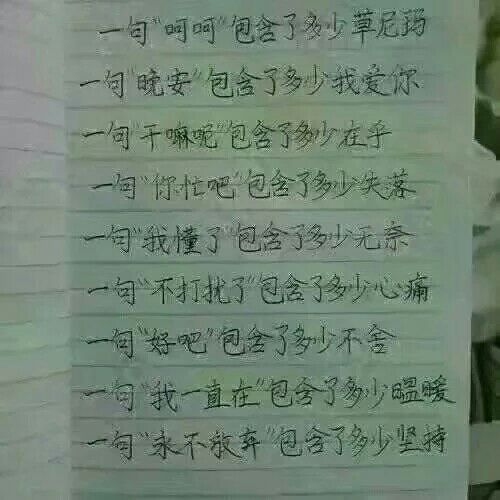 一句“呵呵”包含了多少草尼玛
一句“晚安”包含了多少我爱你
一句“干嘛呢”包含了多少在乎
一句“你忙吧”包含了多少失落
一句“我懂了”包含了多少无奈
一句“不打扰了”包含了多少心痛
一句“好吧”包含了多少不舍
一句“我一直在”包含了多少温暖
一句“永不放弃”包含了多少坚持